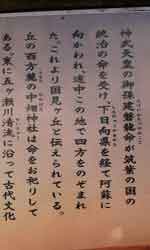 神武天皇の御孫建磐龍命が筑紫の国の
統治の命を受け、下日向県を経て阿蘇に
向かわれ、途中この地で四方をのぞまれ
た。これより国見ヶ丘と伝えられている。
丘の西方麓の中畑神社は命をお祀りして
ある。東に五ヶ瀬川清流に沿って古代文化